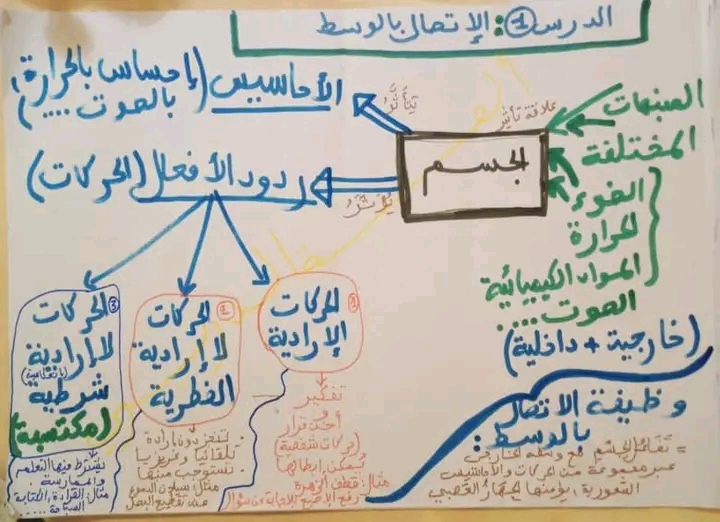 الدرس 1: الإتصال بالوسط
المنبهات
المختلفة
الضوء
الحرارة
المواد الكيميائية
الصوت.....
(خارجية + داخلية)
علاقة تأثير
الجسم
يتأثر
الأحاسيس (إحساس بالحرارة،
بالصوت....)
يؤثر
ردود الأفعال (الحركات)
1
الحركات
الإرادية
تفكير
أخذ قرار
(حركات شخصية)
يمكن إبطالها
مثال: قطف الزهرة
رفع الإصبع للإجابة عن سؤال
2
الحركات
لاإرادية
الفطرية
تنفذ بدون إرادة
تلقائيا وغريزيا
تستوجب منبها
مثال: سيلان الدموع
عند تقطيع البصل
3
الحركات
لاإرادية
شرطية
(مكتسبة)
يشترط فيها التعلم
والممارسة
مثال: القراءة، الكتابة
السباحة.....
وظيفة الاتصال
بالوسط:
= تفاعل الجسم مع وسطه الخارجي
عبر مجموعة من الحركات والأحاسيس
الشعورية، يؤمنها الجهاز العصبي